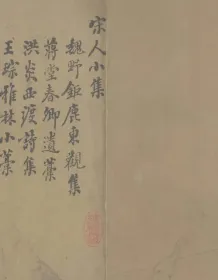 宋人小集
魏野鉅鹿東觀集
蔣堂春卿遺藁
洪炎西渡詩集
王琮雅林小藁